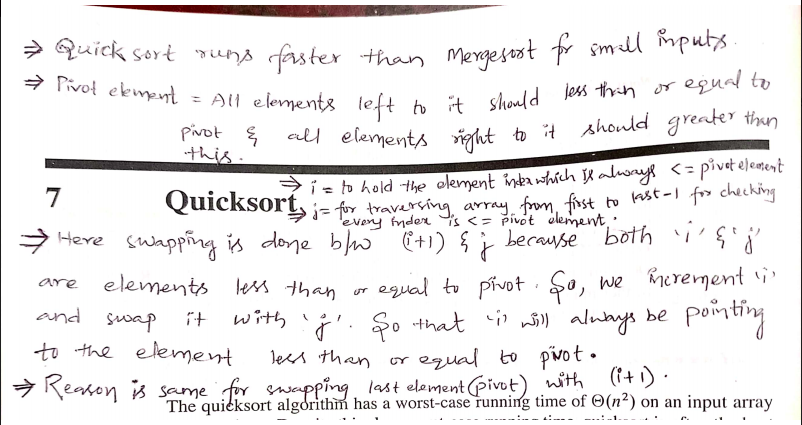 ⇒ Quick sort runs faster than Mergesort for small inputs.
⇒ Pivot element = All elements left to it should less than or equal to
pivot & all elements right to it should greater than
this.
⇒ i = to hold the element index which is always <= pivot element
7 Quicksort
⇒ j = for traversing array from first to last-1 for checking
every index is <= pivot element.
⇒ Here swapping is done b/w (i+1) & j because both 'i' & 'j'
are elements less than or equal to pivot. So, we increment 'i'
and swap it with 'j'. So that 'i' will always be pointing
to the element less than or equal to pivot.
⇒ Reason is same for swapping last element (pivot) with (i+1).
The quicksort algorithm has a worst-case running time of Θ(n²) on an input array